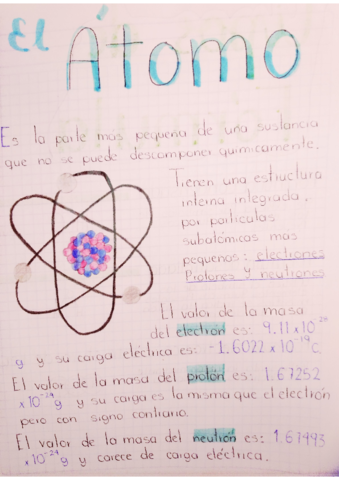 El
Átomo
Es la parte mas pequeña de una sustancia
que no se puede descomponer químicamente.
Tienen una estructura
interna integrada,
por partículas
subatómicas mas
pequeñas: electrones
Protones y neutrones
El valor de la masa
del electrón es: 9.11 x 10⁻²⁸
g y su carga eléctrica es: -1.6022 x 10⁻¹⁹ C.
El valor de la masa del protón es: 1.67252
x 10⁻²⁴ g y su carga es la misma que el electrón
pero con signo contrario.
El valor de la masa del neutrón es: 1.67493
x 10⁻²⁴ g y carece de carga eléctrica.